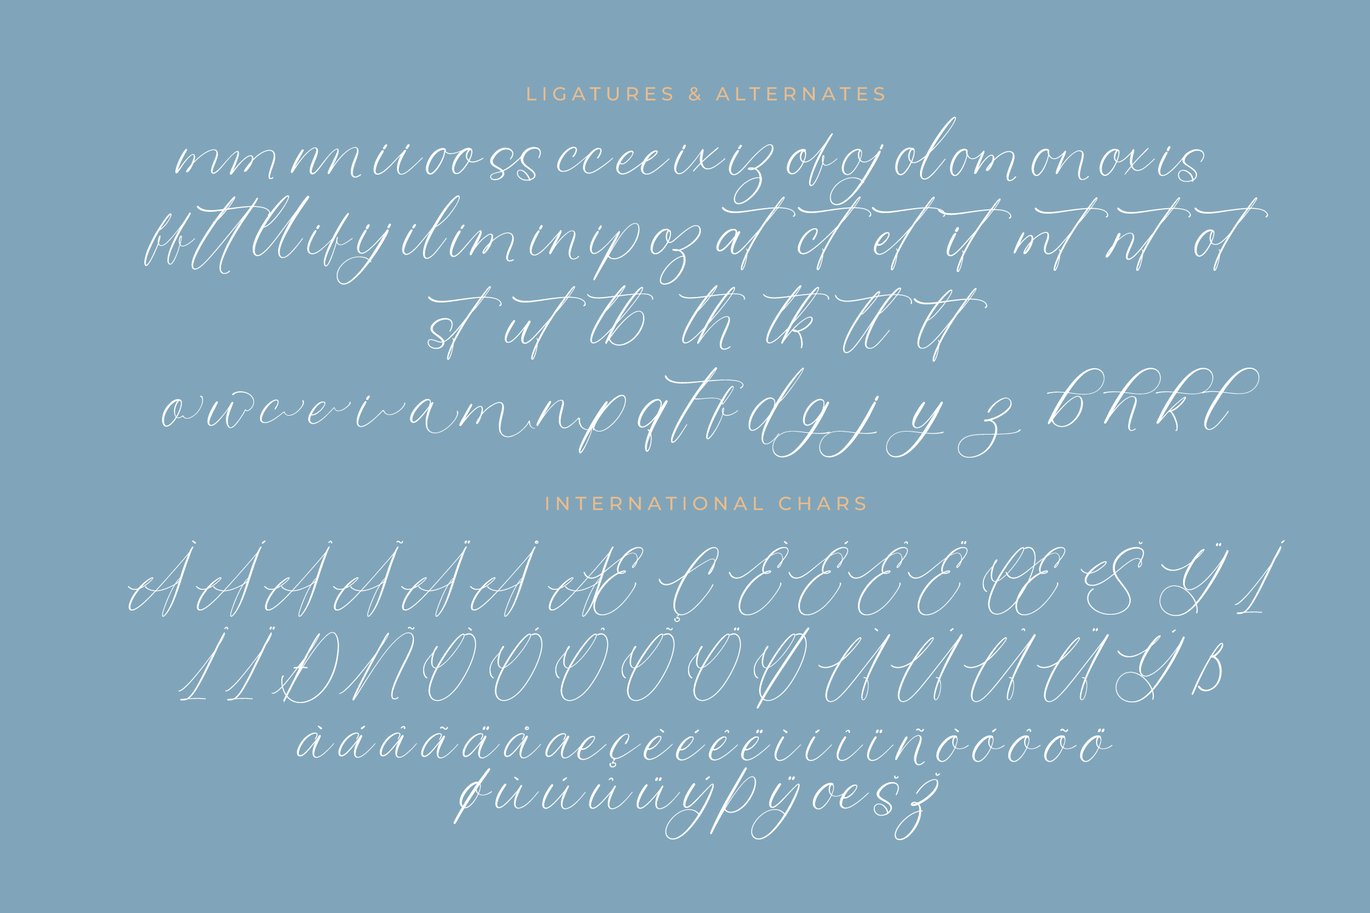 LIGATURES & ALTERNATES
mm nn ii oo ss cc ee ix iz of oj ol om on ox is
ff tt ll if ij il im in ip oz at ct et it mt nt ot
st ut tb th tk tl lt
o w c e i a m n p q t f d g j y z b h k l
INTERNATIONAL CHARS
À Á Â Ã Ä Å Æ Ç È É Ê Ë Œ Š Ÿ Í
Î Ï Ð Ñ Ò Ó Ô Õ Ö Ø Ù Ú Û Ü Ý ß
à á â ã ä å æ ç è é ê ë ì í î ï ñ ò ó ô õ ö
ø ù ú û ü ý þ ÿ œ š ž